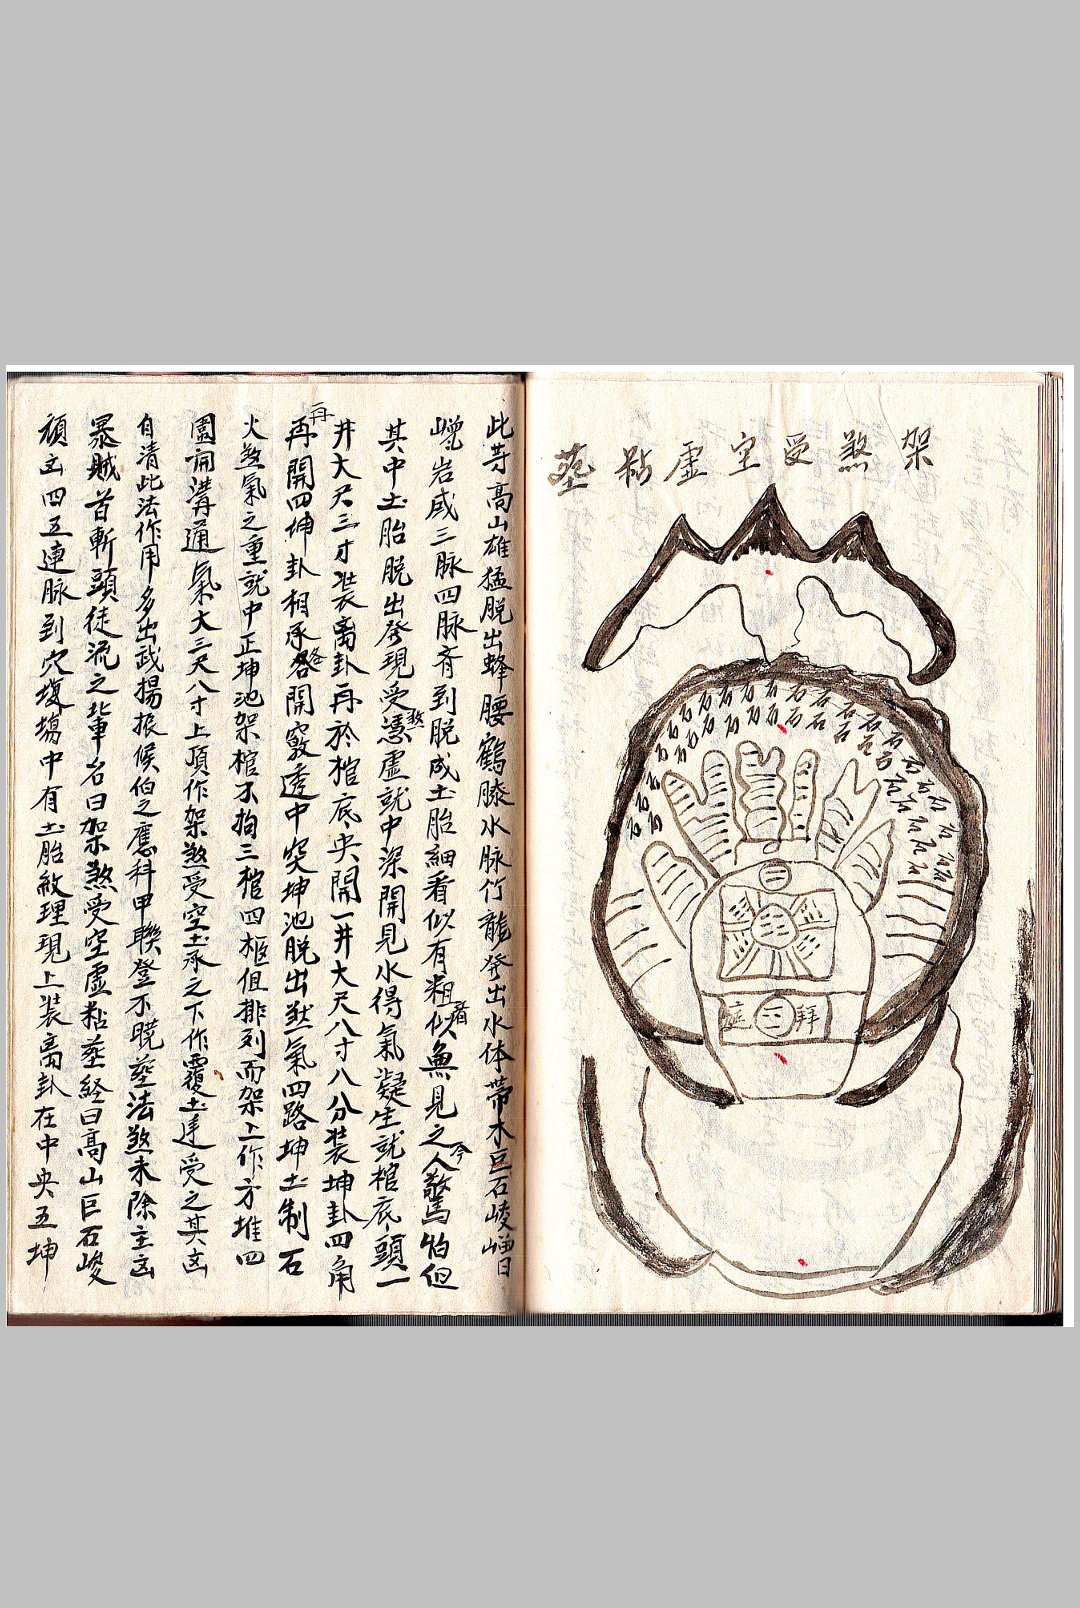 架煞受空虛粘葬
石石石石石石石石石石石石石石石石石石石石石石石石石石石石石石石石石石石石
三
拜 二
此芽高山雄猛脱出蜂腰鶴膝水脉行龍發出水体帶木巨石峻嶒日
嶝岩成三脉四脉齊到脱成土胎細看似有粗看似無見之令人驚怕但
其中土胎脱出發現受煞憑虛就中深開見水得氣凝生就棺底頭一
井大尺三寸裝離卦再於棺底央開一井大尺八寸八分裝坤卦四角
再再開四坤卦相承各開竅透中突坤池脱出煞氣四路坤土制石
火煞氣之重就中正坤池架棺不拘三棺四柩但排列而架上作方堆四
圍開溝通氣大三尺八寸上頂作架煞受空土承之下作覆土逢受之其凶
自清此法作用多出武揚振候伯之應科甲聯登不曉葬法煞未除主凶
暴賊首斬頭徒流之輩名曰架煞受空虛粘葬経曰高山巨石峻
頑凶四五連脉到穴塲中有土胎紋理現上裝离卦在中央五坤